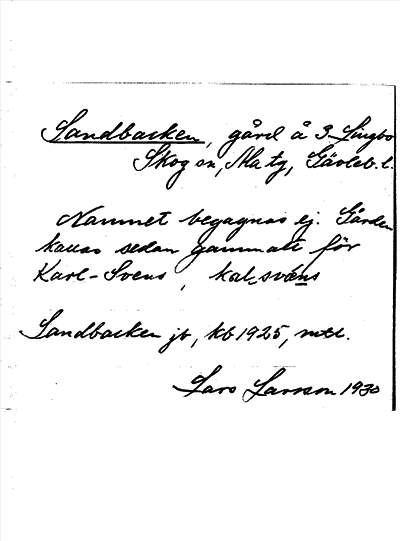 Sandbacken, gård å 3 Lingbo
Skog sn, Ala tg, Gävleb. l.
Namnet begagnas ej. Gården
kallas sedan gammalt för
Karl-Svens, kal-svéns
Sandbacken jb, kb 1925, mtl.
Lars Larsson 1930